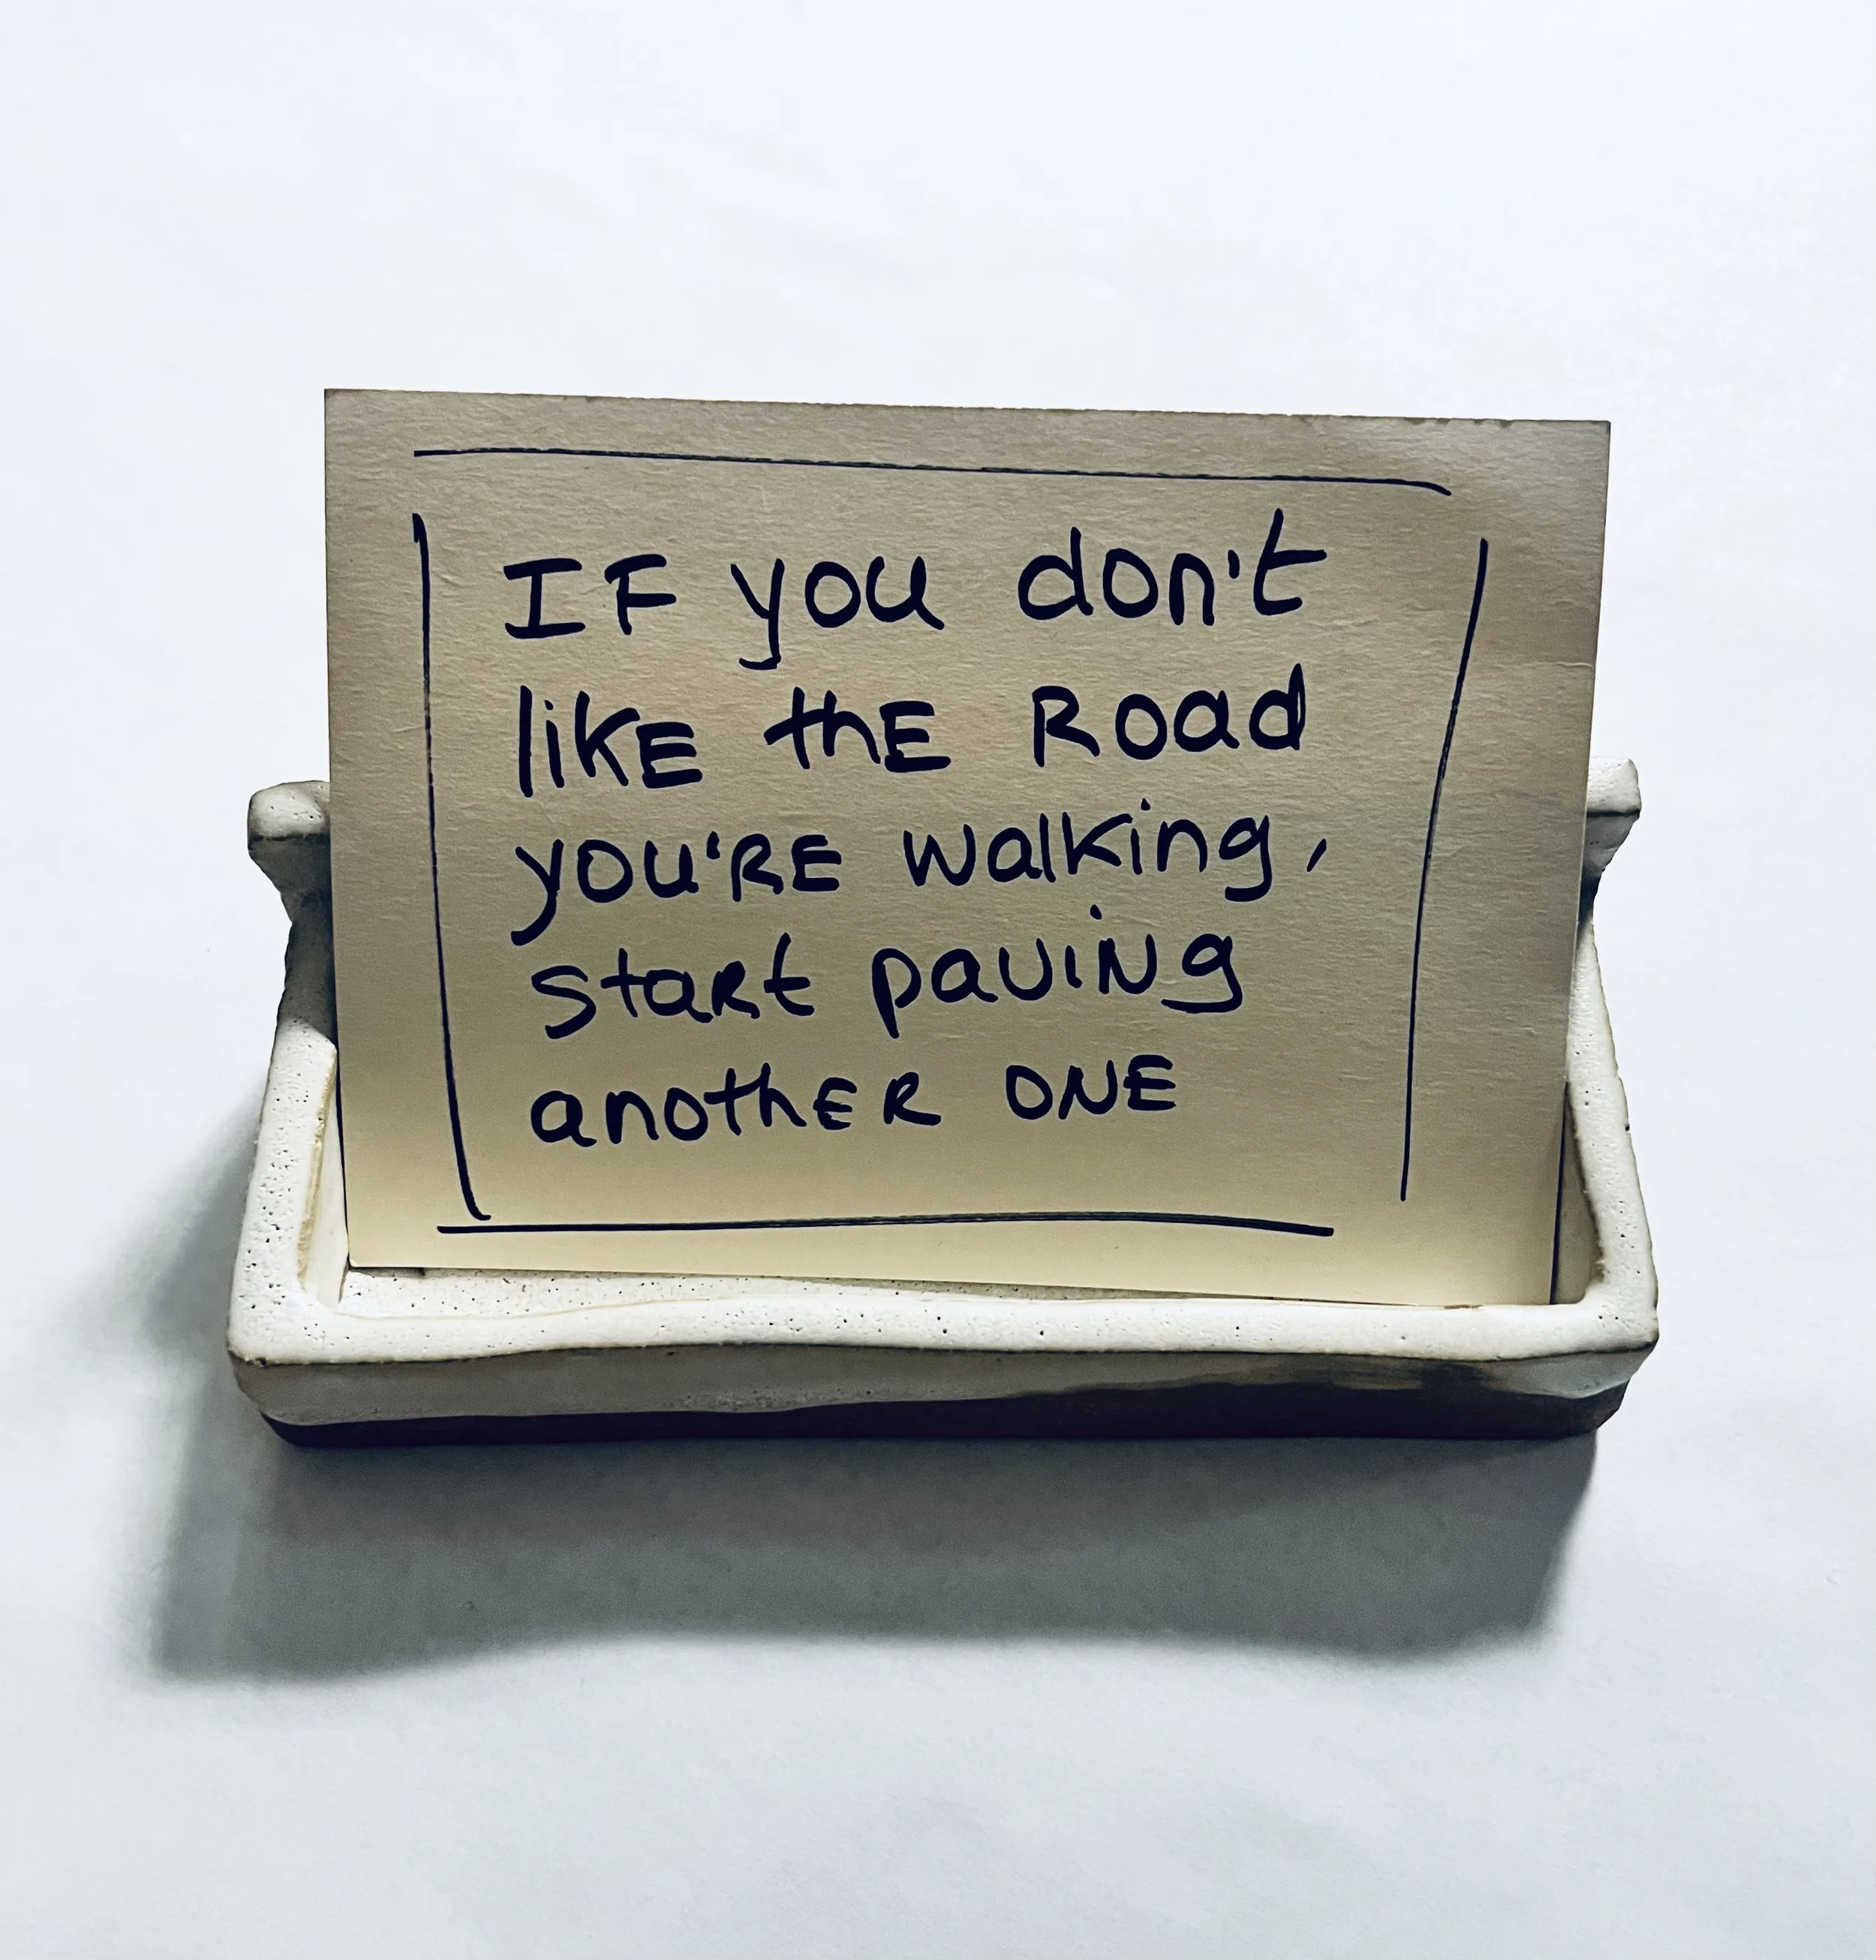 IF you don't
likE thE Road
you'RE walking,
staRt paviNg
anothER ONE